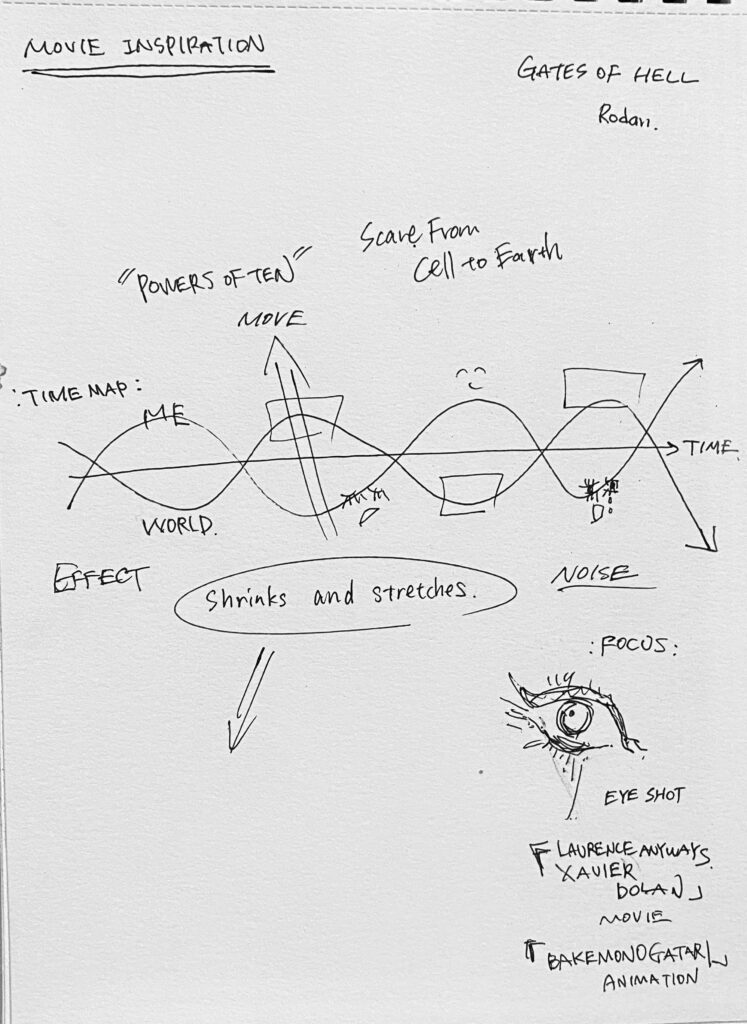 MOVIE INSPIRATION
GATES OF HELL
Rodan.
"POWERS OF TEN"
Scare From
Cell to Earth
MOVE
:TIME MAP:
ME
TIME
WORLD.
EFFECT
Shrinks and stretches.
NOISE
:FOCUS:
EYE SHOT
「LAURENCE ANYWAYS.
XAVIER
DOLAN」
MOVIE
「BAKEMONOGATARI」
ANIMATION